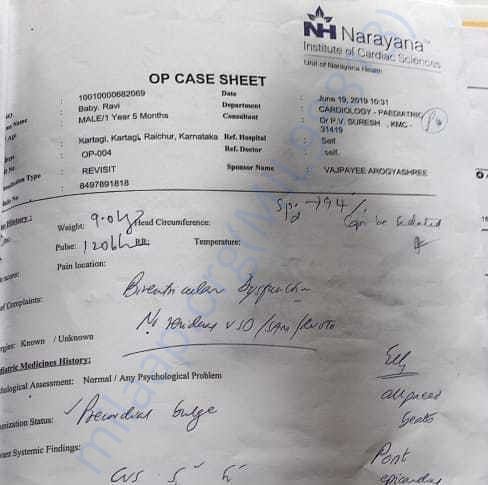 NH Narayana
Institute of Cardiac Sciences
Unit of Narayana Health
OP CASE SHEET
: 10010000682069 Date : June 19, 2019 10:31
Name : Baby. Ravi Department : CARDIOLOGY - PAEDIATRIC
: MALE/1 Year 5 Months Consultant : Dr P.V. SURESH , KMC -
31419
: Kartagi, Kartagi, Raichur, Karnataka Ref. Hospital : Self
: OP-004 Ref. Doctor : self.
Type : REVISIT Sponsor Name : VAJPAYEE AROGYASHREE
: 8497891818
History : Spo2 → 94 /.
Weight: 9.0kg Head Circumference: Can be Sedated
Pulse: 120 bh RR: Temperature:
Pain location:
Complaints: Biventricular Dysfunction
No residual VSD/SAM/RVOTO
Known / Unknown
Medicines History:
Assessment: Normal / Any Psychological Problem
all paced
beats
Status: Precordial bulge
Systemic Findings:
CVS
milaap.org